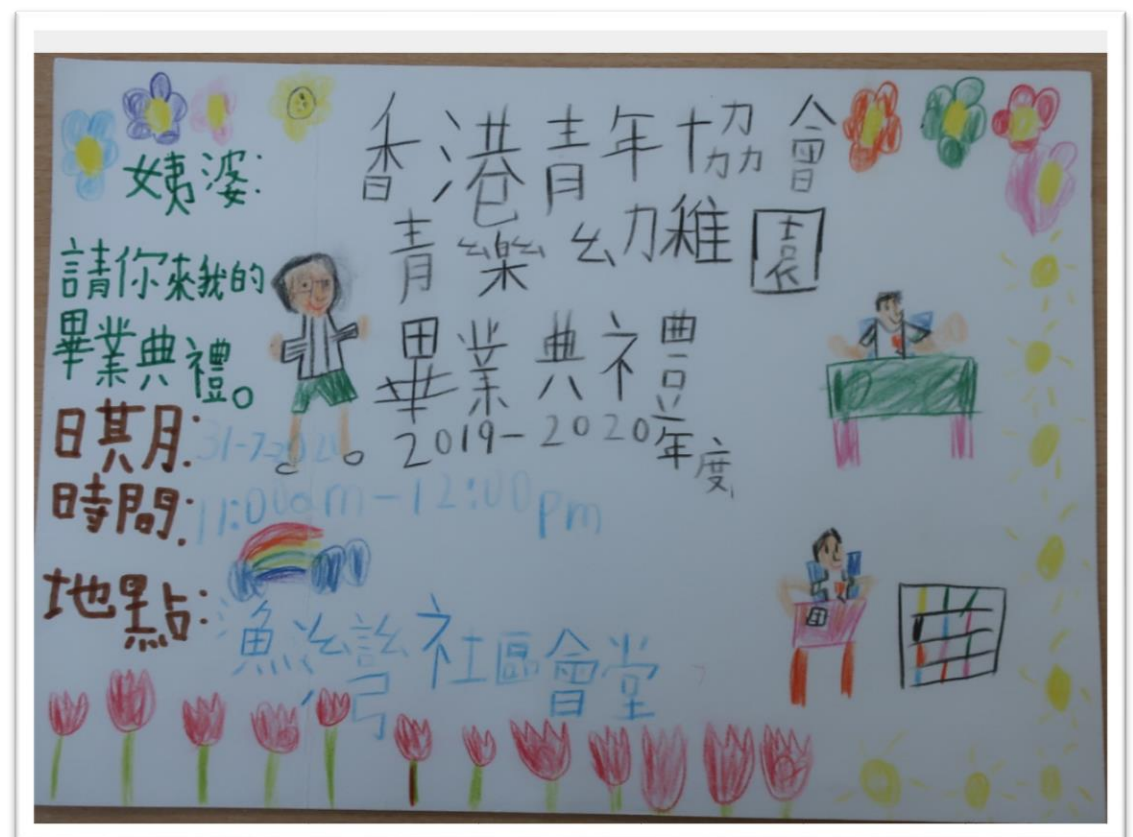 姨婆:
請你來我的
畢業典禮。
日期:31-7-2020
時間:11:00am-12:00pm
地點:漁灣社區會堂
香港青年協會
青樂幼稚園
畢業典禮
2019-2020年度